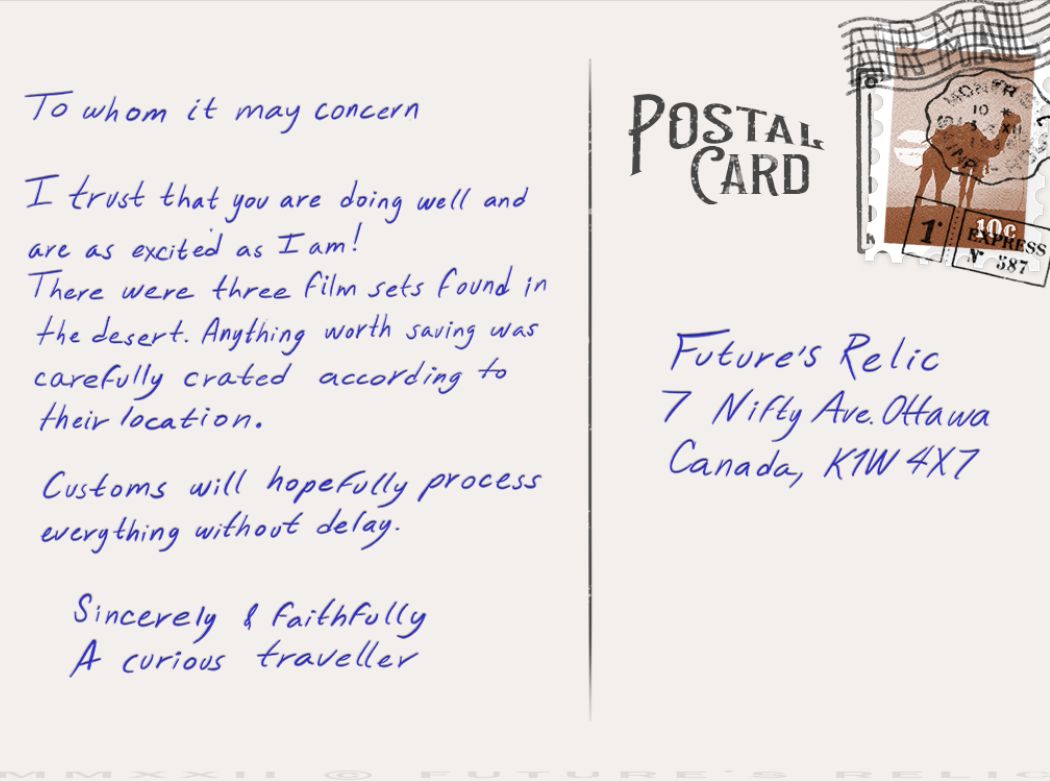 To whom it may concern
I trust that you are doing well and
are as excited as I am!
There were three film sets found in
the desert. Anything worth saving was
carefully crated according to
their location.
Customs will hopefully process
everything without delay.
Sincerely & faithfully
A curious traveller
POSTAL
CARD
AIR MAIL
AIR MAIL
10
XII
10c
1
EXPRESS
No 587
Future's Relic
7 Nifty Ave. Ottawa
Canada, K1W 4X7
MMXXII © FUTURE'S RELIC